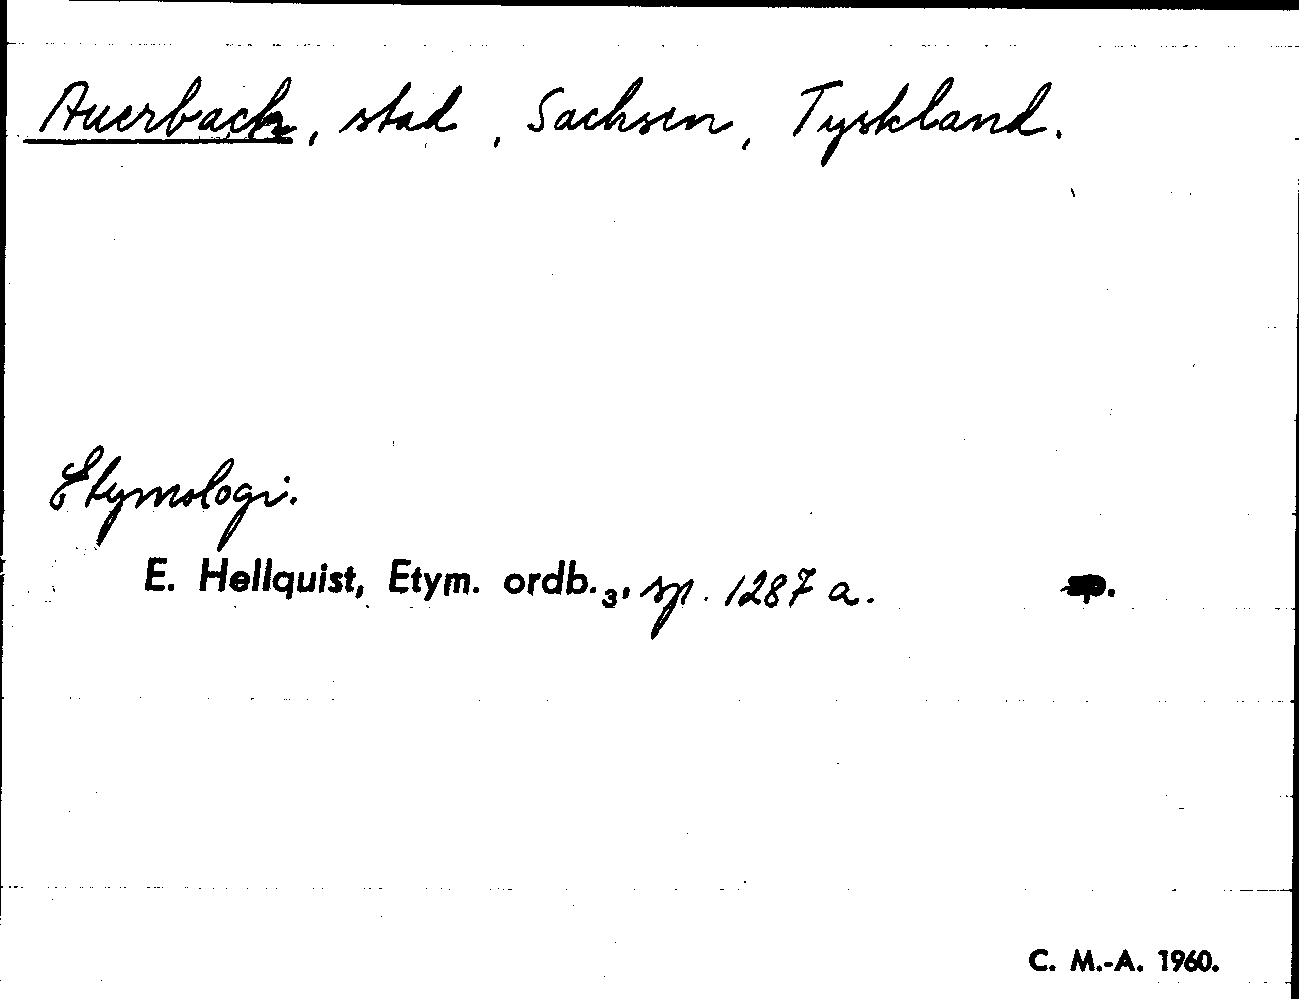 Auerbach, stad, Sachsen, Tyskland.
Etymologi.
E. Hellquist, Etym. ordb.₃, sp. 1287 a. sp.
C. M.-A. 1960.